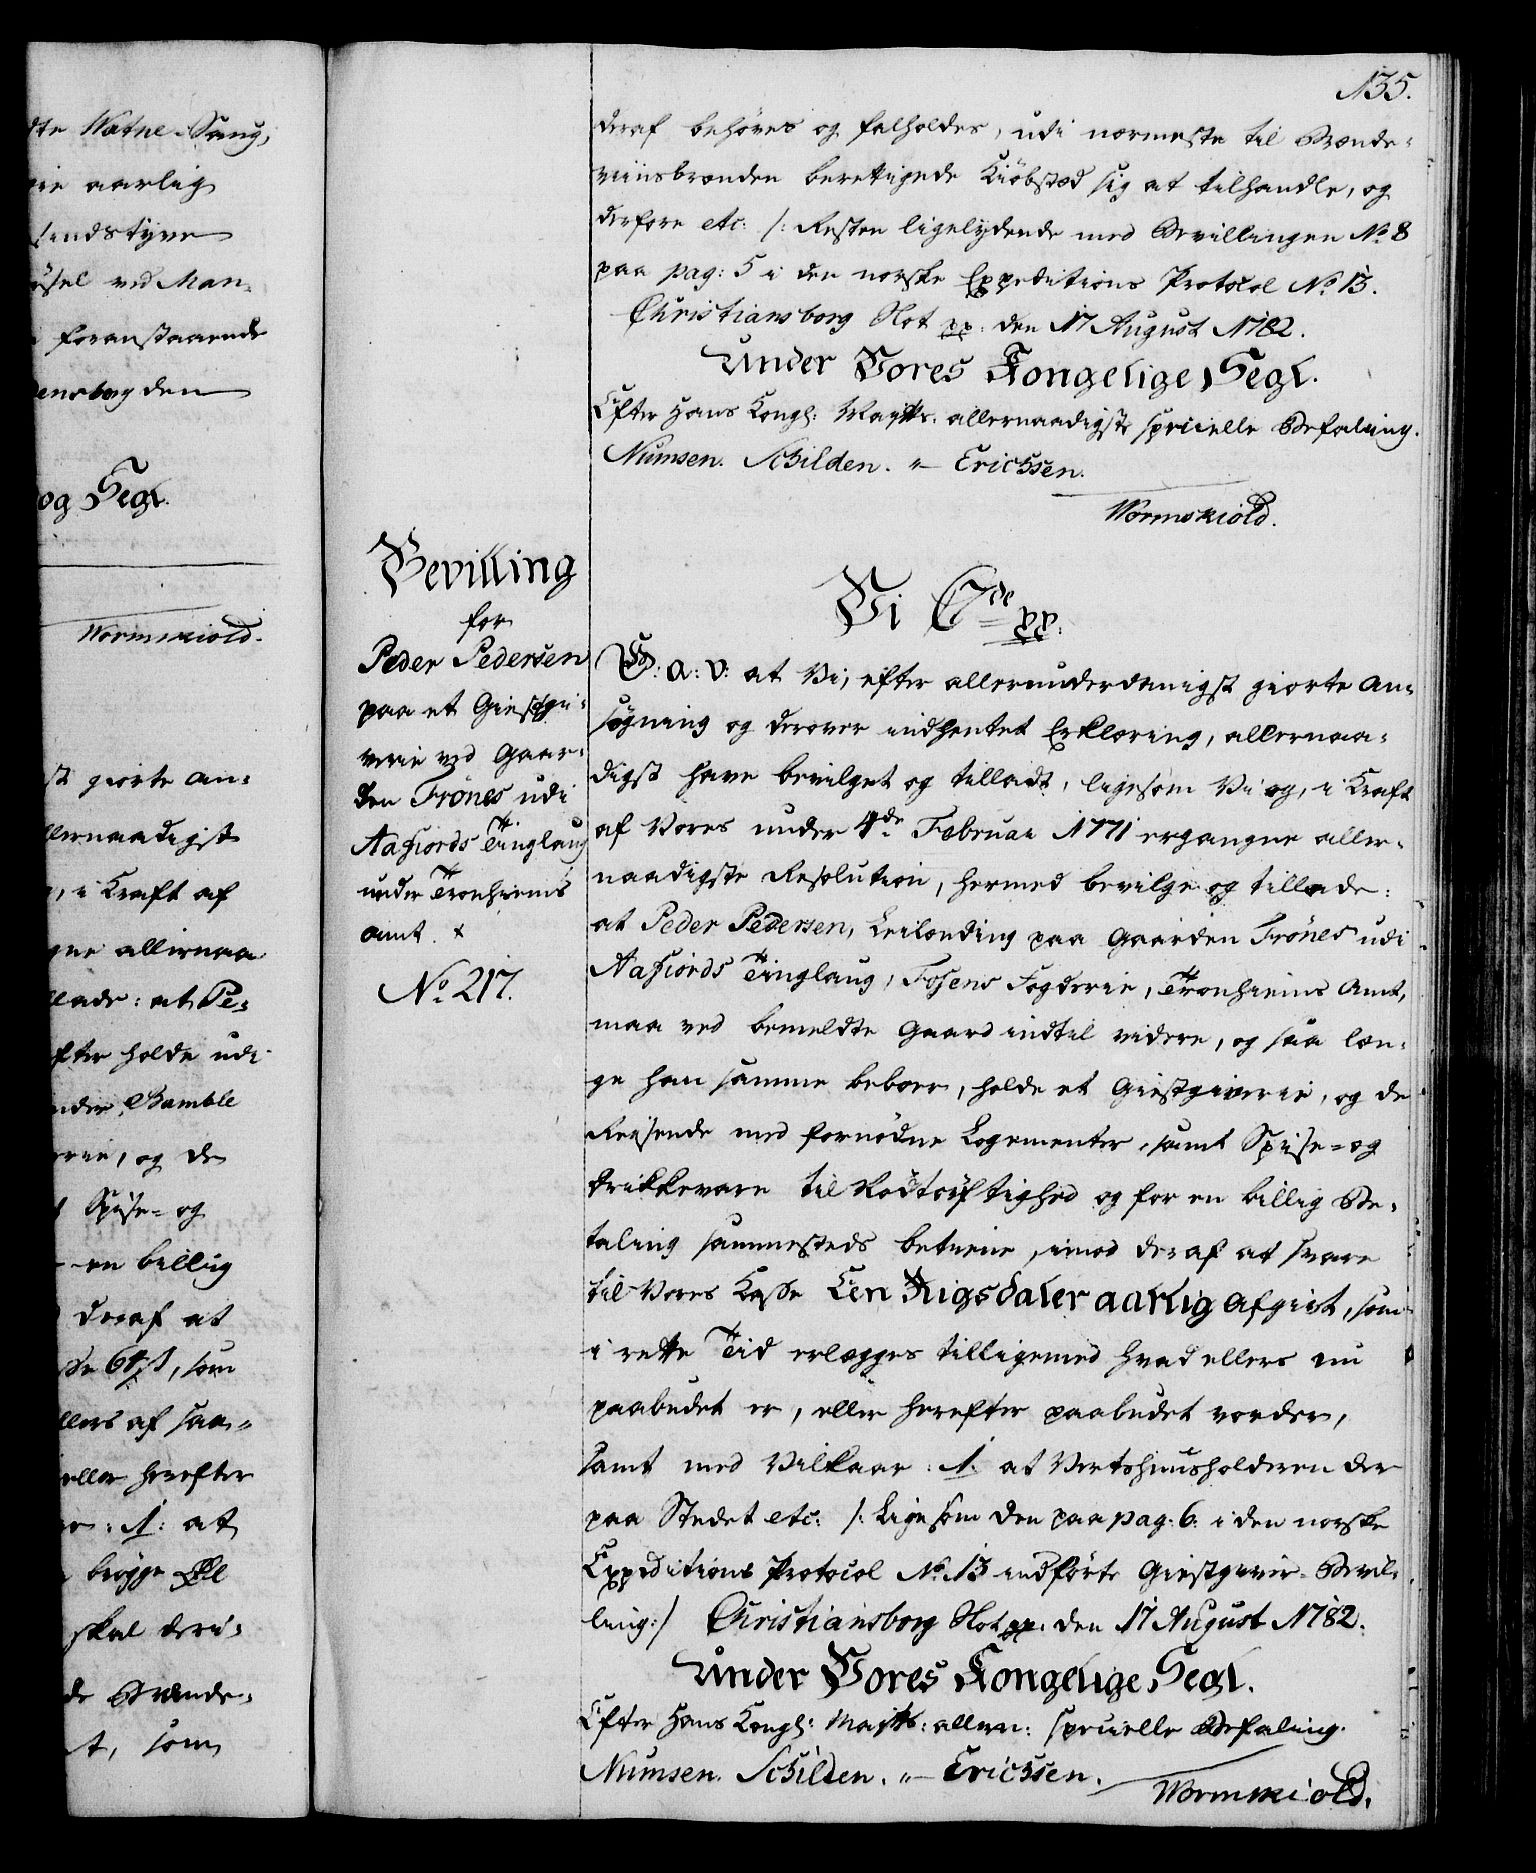 dte Watne-Saug,
aarlig
sindstyve
ved Man-
foranstaaende
ensborg den
og Segl.
Wormskiold.
st giorte An-
llernaadigst
, i Kraft af
gne allernaa
llade: at Pe-
fter holde udi
nder Bamble
erie, og de
Spise- og
en billig
deraf at
64 ß, som
llers af saa-
eller herefter
: 1: at
brygge Øl
skal deri-
de Brænde-
t, som
135.
deraf behøves og falholdes, udi nærmeste til Brænde-
viinsbrænden berettigede Kiöbstæd sig at tilhandle, og
derfore etc: /: Resten ligelydende med Bevillingen No 8
paa pag: 5 i den norske Expeditions Protocol No 13.
Christiansborg Slot pp. den 17 August 1782.
Under Vores Kongelige Segl.
Efter Hans Kongl: Mayts: allernaadigste specielle Befaling.
Numsen. Schilden. " Erichsen.
Wormskiold.
Bevilling
for
Peder Pedersen
paa et Giestgi-
verie ved Gaar-
den Frönes udi
Aafiords Tinglaug
under Tronhiems
Amt. x
No 217.
Vi C 7de pp.
G: A: V: at Vi, efter allerunderdanigst giorte An-
søgning og derover indhentet Erklæring, allernaa-
digst have bevilget og tilladt, ligesom Vi og, i Kraft
af Vores under 4de Februar 1771 ergangne aller-
naadigste Resolution, hermed bevilge og tillade:
at Peder Pedersen, Leilænding paa Gaarden Frönes udi
Aafiords Tinglaug, Fosens Fogderie, Tronhiems Amt,
maa ved bemeldte Gaard indtil videre, og saa læn-
ge han samme beboer, holde et Giestgiverie, og de
Reisende med fornødne Logementer, samt Spise- og
Drikkevare til Nödtörftighed og for en billig Be-
taling sammesteds betiene, imod deraf at svare
til Vores Kasse Een Rigsdaler aarlig Afgivt, som
i rette Tid erlægges tilligemed hvad ellers nu
paabudet er, eller herefter paabudet vorder,
samt med Vilkaar: 1. at Vertshuusholderen der
paa Stedet etc: /: Ligesom den paa pag: 6. i den norske
Expeditions Protocol No 13 indförte Giestgiver-Bevil-
ling:/ Christiansborg Slot pp. den 17 August 1782.
Under Vores Kongelige Segl.
Efter Hans Kongl: Mayts: allern: specielle Befaling.
Numsen. Schilden. " Erichsen.
Wormskiold.